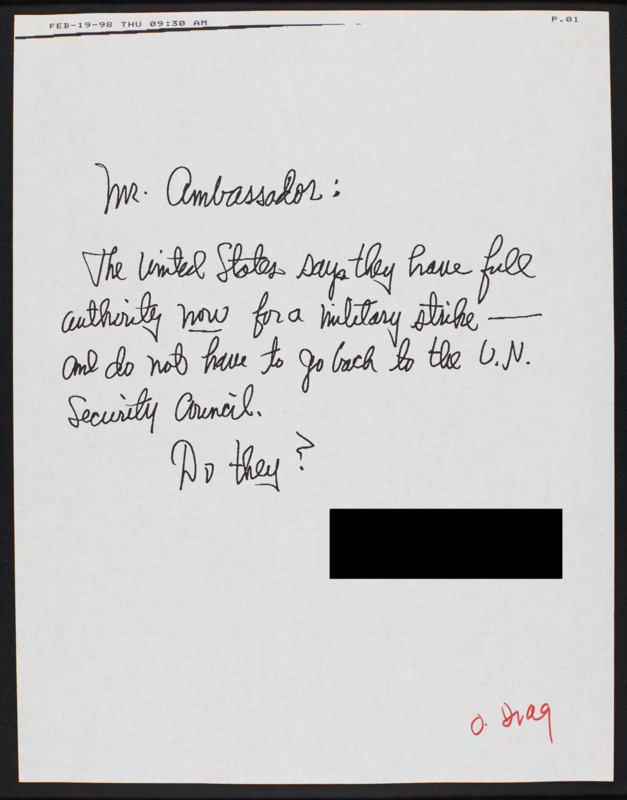 FEB-19-98 THU 09:30 AM P.01
Mr. Ambassador:
The United States says they have full
authority now for a military strike —
and do not have to go back to the U.N.
Security Council.
Do they?
O. Iraq